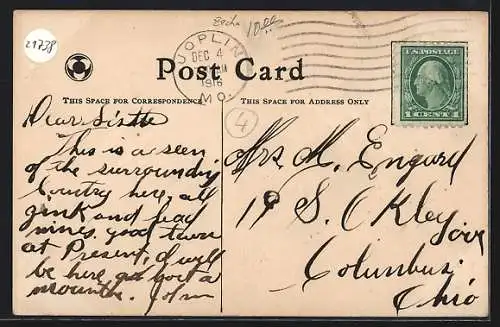 21738
JOPLIN
DEC 4
1916
MO.
U.S. POSTAGE
1 CENT 1
Post Card
THIS SPACE FOR CORRESPONDENCE
THIS SPACE FOR ADDRESS ONLY
4
Dear Sister
This is a seen
of the surrounding
Country here, all
zink and lead
mines, good town
at Present, I will
be here a
mounth. John
Mrs. M. Engurd
19 S. Okley
Columbus
Ohio